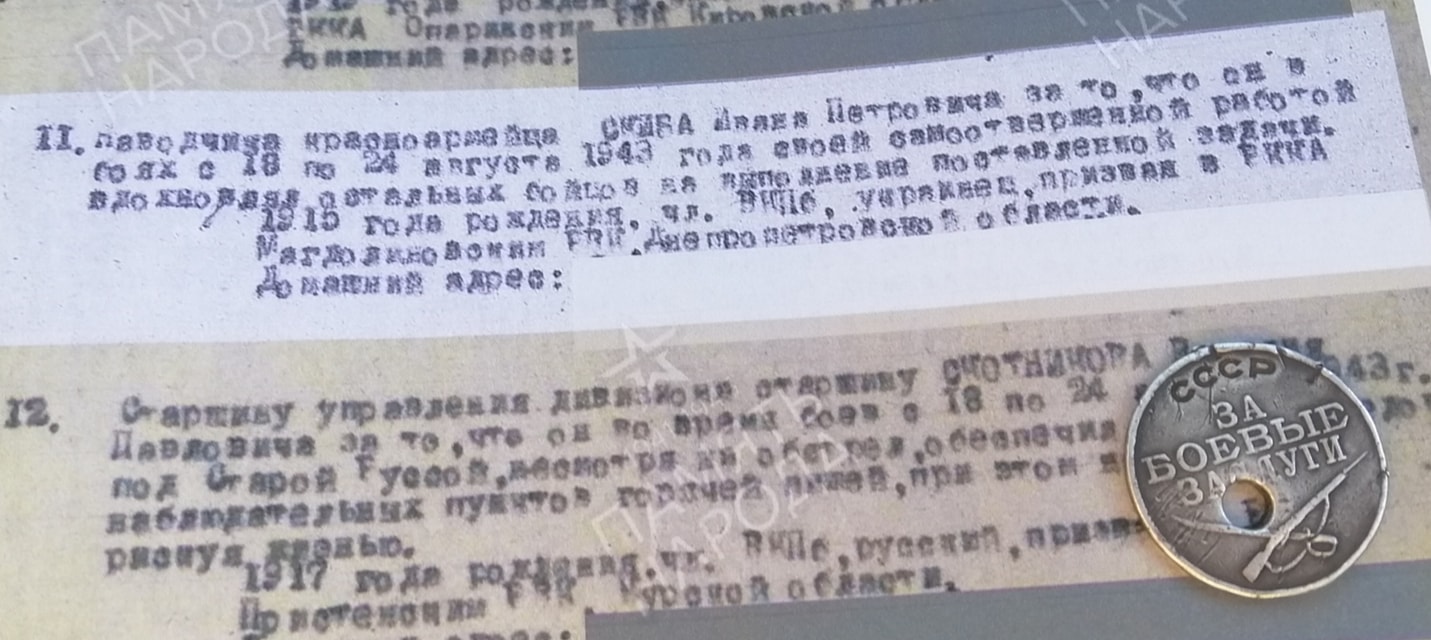 РККА Опаринским РВК Кировской
Домашний адрес:
11. Наводчика красноармейца СКИБА Ивана Петровича за то, что он в
боях с 18 по 24 августа 1943 года своей самоотверженной работой
вдохновлял остальных бойцов на выполнение поставленной задачи.
1915 года рождения, чл. ВКПб, украинец, призван в РККА
Магдалиновским РВК, Днепропетровской области.
Домашний адрес:
12. Старшину управления дивизиона старшину СМОТНИКОВА
Павловича за то, что он во время боев с 18 по 24 1943 г.
под Старой Руссой, несмотря на обстрел, обеспечил
наблюдательных пунктов горячей пищей, при этом
рискуя жизнью.
1917 года рождения, чл. ВКПб, русский,
Пристенским РВК Курской области.
СССР
ЗА
БОЕВЫЕ
ЗАСЛУГИ
ПАМЯТЬ
НАРОДА